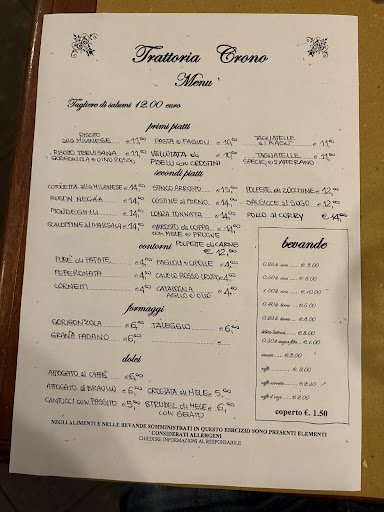 Trattoria Crono
Menu
Tagliere di salumi 12.00 euro
primi piatti
RISOTTO alla MILANESE € 11,00
PASTA e FAGIOLI € 10,00
TAGLIATELLE al RAGÙ € 11,00
RISOTTO TREVIGIANA GORGONZOLA e VINO ROSSO € 11,00
VELLUTATA di PISELLI con CROSTINI € 10,00
TAGLIATELLE SPECK e ZAFFERANO € 11,00
secondi piatti
COTOLETTA alla MILANESE € 14,00
STINCO ARROSTO € 13,00
POLPETTE di ZUCCHINE € 12,00
RUSTIN NEGAA € 14,00
COSTINE al FORNO € 14,00
SALSICCE al SUGO € 12,00
MONDEGHILI € 14,00
LONZA TONNATA € 14,00
POLLO al CURRY € 14,00
SCALOPPINE al MARSALA € 14,00
ARROSTO di COPPA con MELE e PRUGNE € 14,00
POLPETTE di CARNE € 12,00
contorni
PURE' di PATATE € 4,00
FAGIOLI e CIPOLLE € 4,00
PEPERONATA € 4,00
CAVOLO ROSSO € 4,00
CORNETTI € 4,00
CATALOGNA AGLIO e OLIO € 4,00
formaggi
GORGONZOLA € 6,00
TALEGGIO € 6,00
GRANA PADANO € 6,00
dolci
AFFOGATO al CAFFE' € 6,00
AFFOGATO al BRAULIO € 6,00
CROSTATA di MELE € 5,00
CANTUCCI con PASSITO € 5,00
STRUDEL di MELE con GELATO € 6,00
bevande
coperto €. 1.50
NEGLI ALIMENTI E NELLE BEVANDE SOMMINISTRATI IN QUESTO ESERCIZIO SONO PRESENTI ELEMENTI
CONSIDERATI ALLERGENI
CHIEDERE INFORMAZIONI AL RESPONSABILE